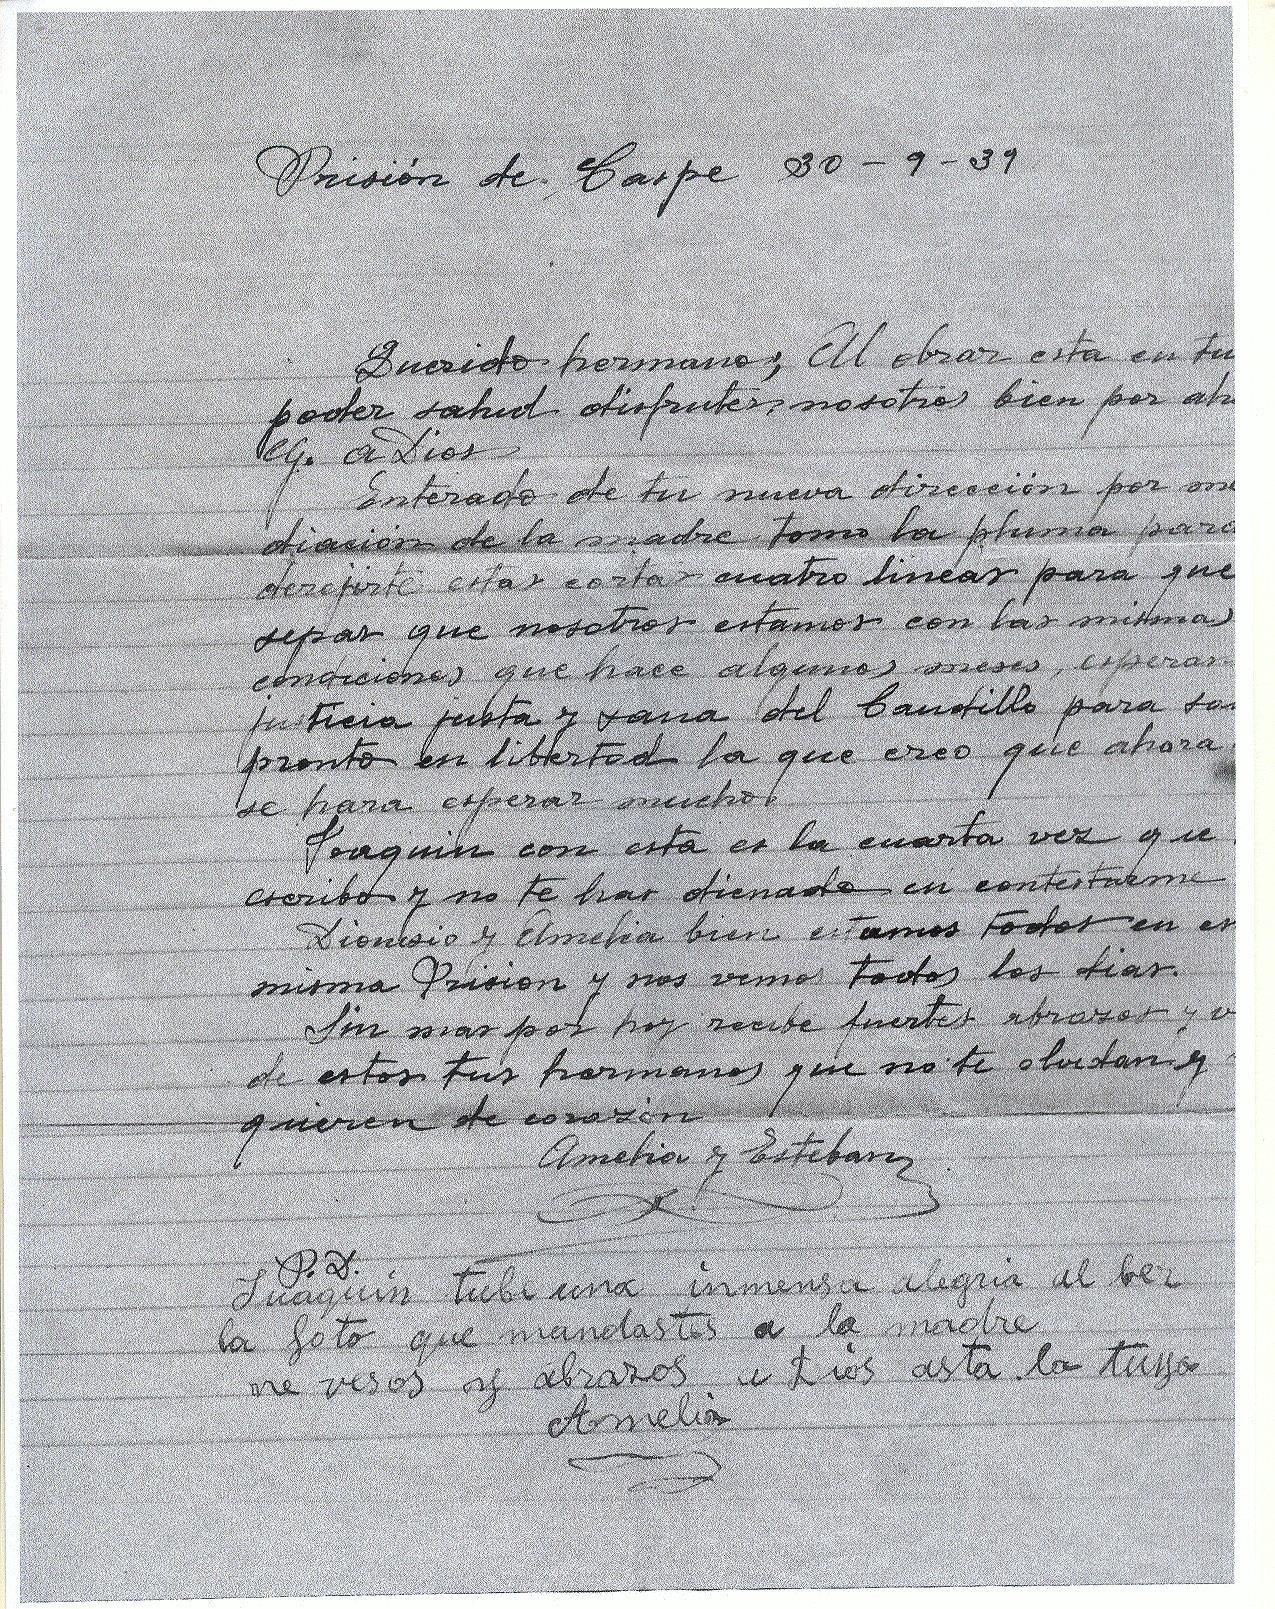 Prisión de Caspe 30-9-39
Querido hermano; Al obrar esta en tu
poder salud disfrutes, nosotros bien por ah
G. a Dios
Enterado de tu nueva dirección por me
diación de la madre tomo la pluma para
derejirte estas cortas cuatro lineas para que
sepas que nosotros estamos con las mismas
condiciones que hace algunos meses, esperan
justicia justa y sana del Caudillo para sa
pronto en libertad la que creo que ahora
se hara esperar mucho.
Joaquin con esta es la cuarta vez que
escribo y no te has dienado en contestarme
Dionisio y Amelia bien estamos todos en es
misma Prision y nos vemos todos los dias.
Sin mas por hoy recibe fuertes abrazos y v
de estos tus hermanos que no te olvidan y
quieren de corazón
Amelia y Esteban
P.D.
Juaquin tube una inmensa alegria al ber
la foto que mandastes a la madre
vesos y abrazos a Dios asta la tuya
Amelia